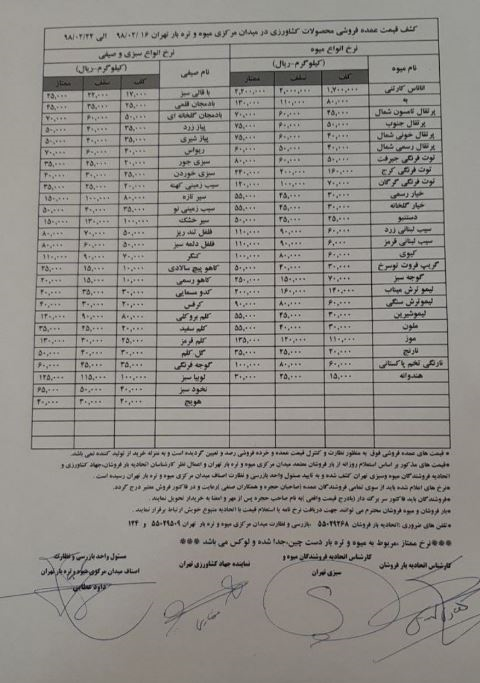 کشف قیمت عمده فروشی محصولات کشاورزی در میدان مرکزی میوه و تره بار تهران ۱۶ /۹۸/۰۲ الی ۹۸/۰۲/۲۲
نرخ انواع میوه
نرخ انواع سبزی و صیفی
نام میوه (کیلوگرم-ریال) نام صیفی (کیلوگرم-ریال)
کف سقف ممتاز کف سقف ممتاز
آناناس کارتنی ۱,۷۰۰,۰۰۰ ۲,۰۰۰,۰۰۰ ۲,۲۰۰,۰۰۰ با قالی سبز ۱۷,۰۰۰ ۲۲,۰۰۰ ۲۵,۰۰۰
به ۸۰,۰۰۰ ۱۱۰,۰۰۰ ۱۳۰,۰۰۰ بادمجان قلمی ۲۵,۰۰۰ ۳۵,۰۰۰ ۴۵,۰۰۰
پرتقال تامسون شمال ۴۵,۰۰۰ ۶۰,۰۰۰ ۷۰,۰۰۰ بادمجان گلخانه ای ۵۰,۰۰۰ ۶۰,۰۰۰ ۷۰,۰۰۰
پرتقال جنوب ۵۰,۰۰۰ ۶۰,۰۰۰ ۷۵,۰۰۰ پیاز زرد ۳۵,۰۰۰ ۴۰,۰۰۰ ۵۰,۰۰۰
پرتقال خونی شمال ۴۰,۰۰۰ ۶۰,۰۰۰ ۷۵,۰۰۰ پیاز شیری
پرتقال رسمی شمال ۴۰,۰۰۰ ۵۰,۰۰۰ ۶۰,۰۰۰ ریواس
توت فرنگی جیرفت ۵۰,۰۰۰ ۶۰,۰۰۰ ۸۰,۰۰۰ سبزی جور ۲۰,۰۰۰ ۲۵,۰۰۰ ۳۵,۰۰۰
توت فرنگی کرج ۱۶۰,۰۰۰ ۲۰۰,۰۰۰ ۲۴۰,۰۰۰ سبزی خوردن ۲۵,۰۰۰ ۳۰,۰۰۰ ۴۰,۰۰۰
توت فرنگی گرگان ۷۰,۰۰۰ ۱۰۰,۰۰۰ ۱۲۰,۰۰۰ سیب زمینی کهنه ۲۰,۰۰۰ ۲۵,۰۰۰ ۳۵,۰۰۰
خیار رسمی ۳۰,۰۰۰ ۴۵,۰۰۰ ۵۵,۰۰۰ سیر تازه ۸۰,۰۰۰ ۱۰۰,۰۰۰ ۱۵۰,۰۰۰
خیار گلخانه ۳۰,۰۰۰ ۴۵,۰۰۰ ۵۵,۰۰۰ سیب زمینی نو ۳۵,۰۰۰ ۴۰,۰۰۰ ۵۰,۰۰۰
دستنبو ۲۵,۰۰۰ ۳۵,۰۰۰ ۵۰,۰۰۰ سیر خشک ۱۰۰,۰۰۰ ۱۳۰,۰۰۰ ۱۵۰,۰۰۰
سیب لبنانی زرد ۶۰,۰۰۰ ۹۰,۰۰۰ ۱۱۰,۰۰۰ فلفل تند ریز ۵۰,۰۰۰ ۷۰,۰۰۰ ۸۰,۰۰۰
سیب لبنانی قرمز ۶,۰۰۰ ۹۰,۰۰۰ ۱۱۰,۰۰۰ فلفل دلمه سبز ۵۰,۰۰۰ ۶۰,۰۰۰ ۸۰,۰۰۰
کیوی ۶۰,۰۰۰ ۸۰,۰۰۰ ۱۰۰,۰۰۰ کنگر ۷۰,۰۰۰ ۹۰,۰۰۰ ۱۱۰,۰۰۰
گریپ فروت توسرخ ۳۰,۰۰۰ ۴۰,۰۰۰ ۵۰,۰۰۰ کاهو پیچ سالادی ۱۰,۰۰۰ ۱۵,۰۰۰ ۲۵,۰۰۰
گوجه سبز ۷۰,۰۰۰ ۱۵۰,۰۰۰ ۲۵۰,۰۰۰ کاهو رسمی ۱۰,۰۰۰ ۱۵,۰۰۰ ۲۰,۰۰۰
لیمو ترش میناب ۱۴۰,۰۰۰ ۱۶۰,۰۰۰ ۲۰۰,۰۰۰ کدو مسمایی ۲۰,۰۰۰ ۳۵,۰۰۰ ۴۰,۰۰۰
لیموترش سنگی ۶۰,۰۰۰ ۸۰,۰۰۰ ۹۰,۰۰۰ کرفس ۲۰,۰۰۰ ۳۰,۰۰۰ ۴۰,۰۰۰
لیموشیرین ۳۰,۰۰۰ ۴۵,۰۰۰ ۵۵,۰۰۰ کلم بروکلی ۸۰,۰۰۰ ۹۰,۰۰۰ ۱۳۰,۰۰۰
ملون ۳۰,۰۰۰ ۴۰,۰۰۰ ۵۵,۰۰۰ کلم سفید ۲۰,۰۰۰ ۲۵,۰۰۰ ۳۵,۰۰۰
موز ۱۱۰,۰۰۰ ۱۲۰,۰۰۰ ۱۳۵,۰۰۰ کلم قرمز ۲۵,۰۰۰ ۳۰,۰۰۰ ۱۳۰,۰۰۰
نارنج ۲۰,۰۰۰ ۲۵,۰۰۰ ۳۵,۰۰۰ گل کلم ۳۰,۰۰۰ ۴۰,۰۰۰ ۵۰,۰۰۰
نارنگی تخم پاکستانی ۶۰,۰۰۰ ۸۰,۰۰۰ ۱۰۰,۰۰۰ گوجه فرنگی ۳۵,۰۰۰ ۴۵,۰۰۰ ۶۰,۰۰۰
هندوانه ۱۵,۰۰۰ ۲۵,۰۰۰ ۳۰,۰۰۰ لوبیا سبز ۱۰۰,۰۰۰ ۱۱۵,۰۰۰ ۱۲۵,۰۰۰
نخود سبز ۴۰,۰۰۰ ۵۰,۰۰۰ ۶۵,۰۰۰
هویج ۲۰,۰۰۰ ۳۰,۰۰۰ ۴۰,۰۰۰
* قیمت های عمده فروشی فوق به منظور نظارت و کنترل قیمت عمده و خرده فروشی رصد و تعیین گردیده است و به منزله خرید از تولید کننده نمی باشد.
*قیمت های مذکور بر اساس استعلام روزانه از بار فروشان معتمد میدان مرکزی میوه و تره بار تهران و اعمال نظر کارشناسان اتحادیه بار فروشان،جهاد کشاورزی و
اتحادیه فروشندگان میوه وسبزی تهران کشف شده و به تایید مسئول واحد بازرسی و نظارت اصناف میدان مرکزی میوه و تره بار تهران رسیده است .
*نرخ های اعلام شده باید از سوی تمامی فروشندگان عمده (صاحبان حجره و همکاران صنفی )رعایت و در فاکتور فروش معتبر درج گردد.
*فروشندگان باید فاکتور سر برگ دار (بادرج قیمت واقعی )به نام صاحب حجره پس از مهر و امضا به خریدار تحویل نمایند .
*بار فروشان و میوه فروشان محترم می توانند جهت دریافت نرخ نامه یا استعلام قیمت با اتحادیه متبوع خویش ارتباط برقرار نمایند.
*تلفن های ضروری :اتحادیه بار فروشان ۵۵۰۴۹۲۶۸ ،بازرسی و نظارت میدان مرکزی میوه و تره بار تهران ۵۵۰۲۹۵۰۹ و ۱۲۴
***نرخ ممتاز ،مربوط به میوه و تره بار دست چین،جدا شده و لوکس می باشد ***
کارشناس اتحادیه بار فروشان
کارشناس اتحادیه فروشندگان میوه و
سبزی تهران
نماینده جهاد کشاورزی تهران
مسئول واحد بازرسی و نظارت
اصناف میدان مرکزی میوه و تره بار تهران
داود عطایی